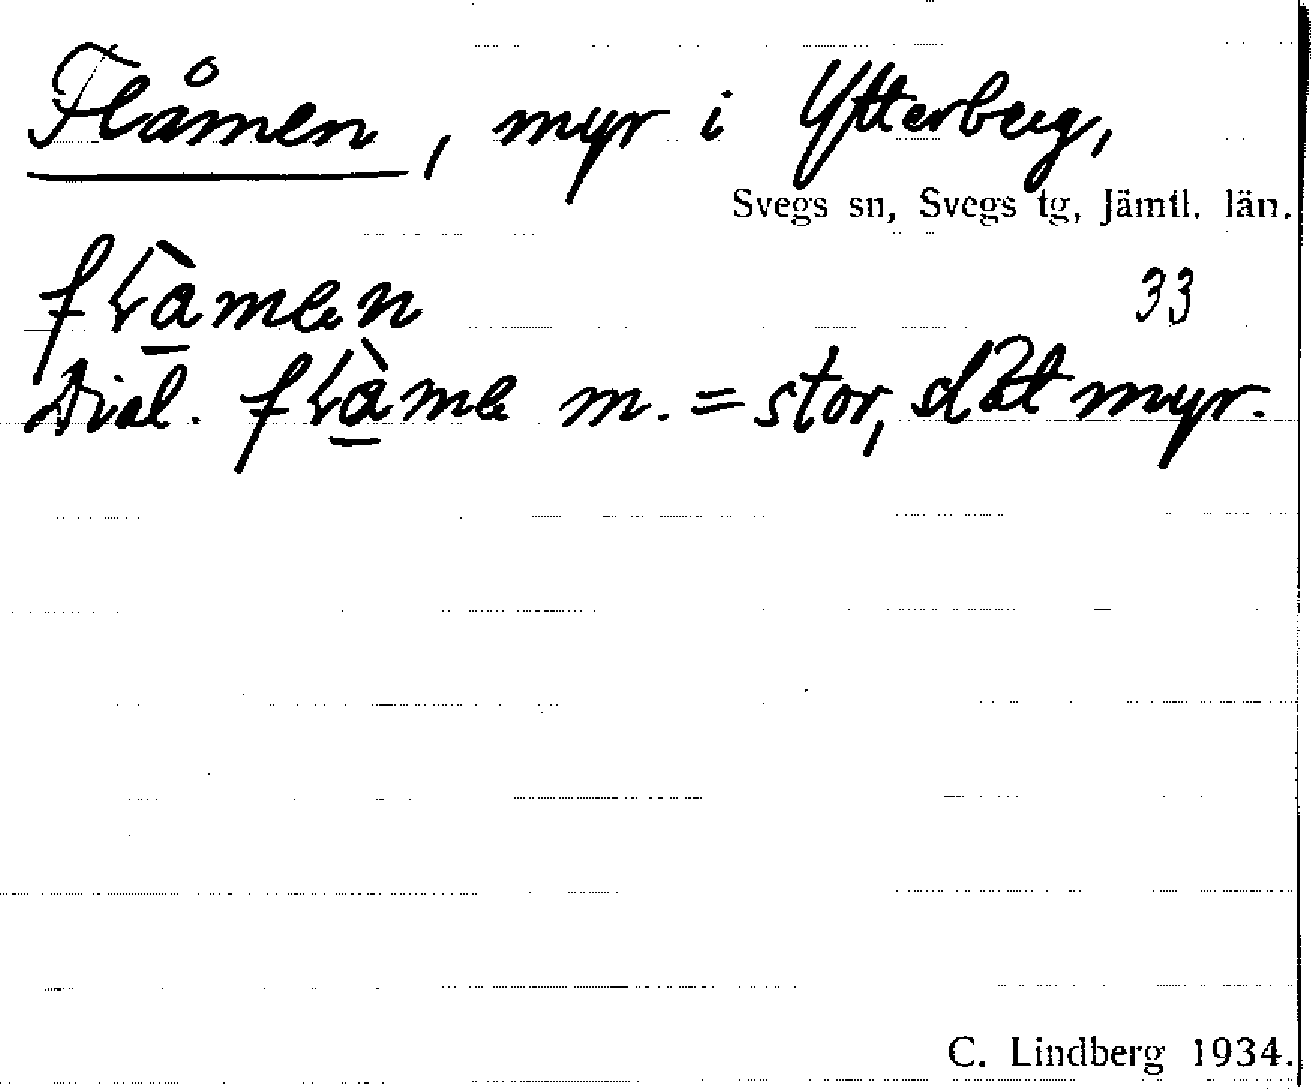 Flåmen, myr i Ytterberg,
Svegs sn, Svegs tg, Jämtl. län.
33
Dial. m. = stor, slät myr.
C. Lindberg 1934.